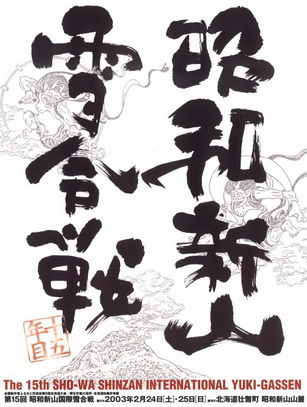 昭和新山
雪合戦
十五年目
The 15th SHO-WA SHINZAN INTERNATIONAL YUKI-GASSEN
第15回 昭和新山国際雪合戦
2003年2月24日[土]・25日[日]
北海道壮瞥町 昭和新山山麓